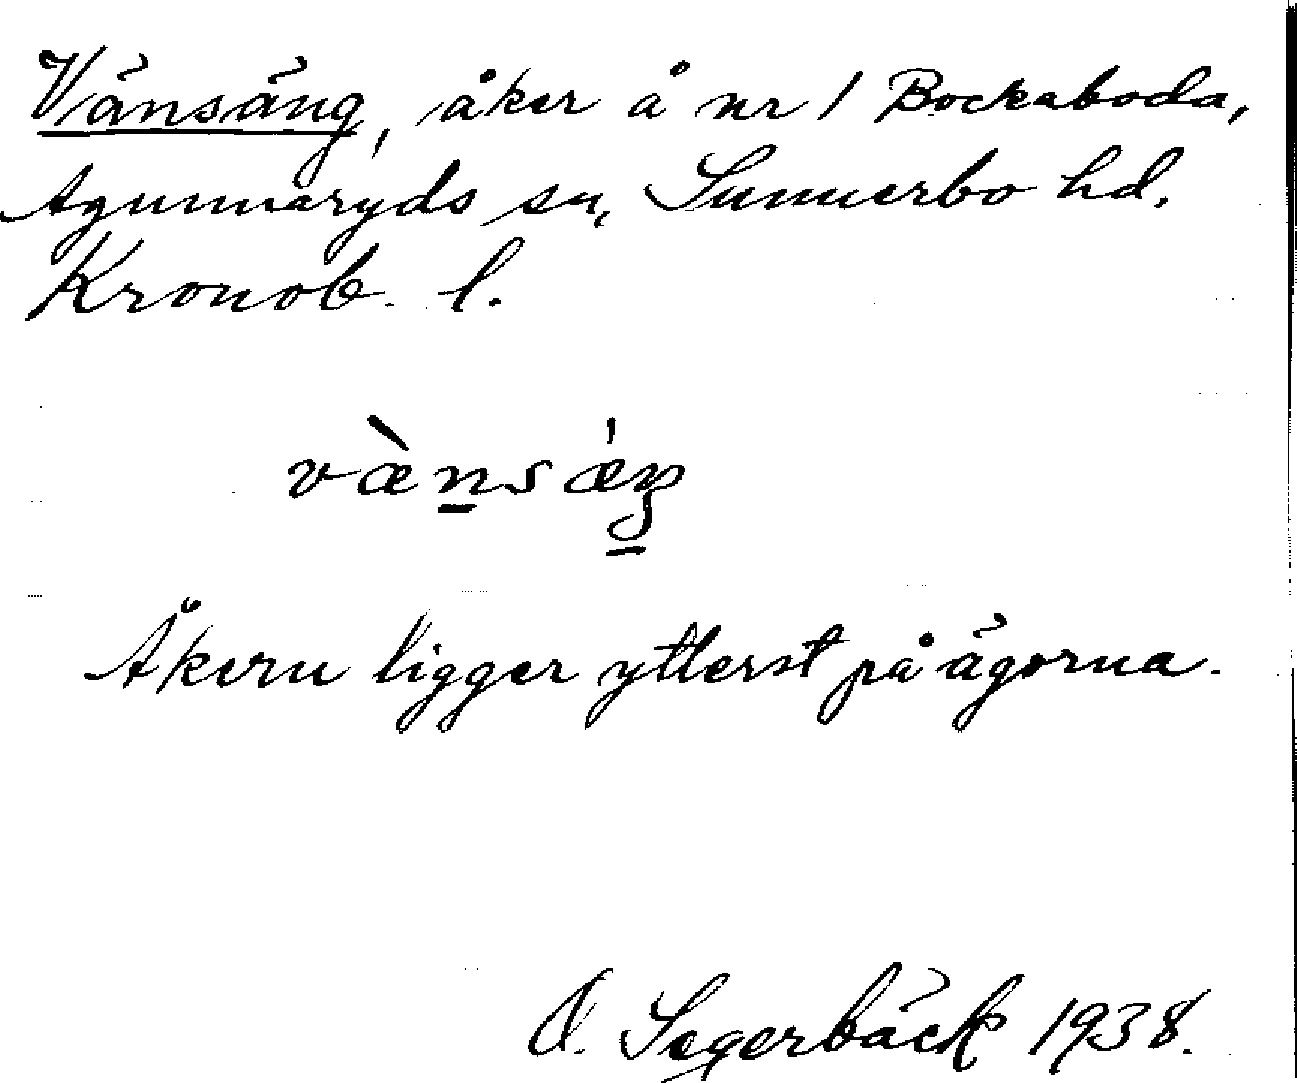 Vänsäng, åker å nr 1 Bockaboda,
Agunnaryds sn, Sunnerbo hd.
Kronob. l.
væ̀nsǽŋ
Åkern ligger ytterst på ägorna.
O. Segerbäck 1938.